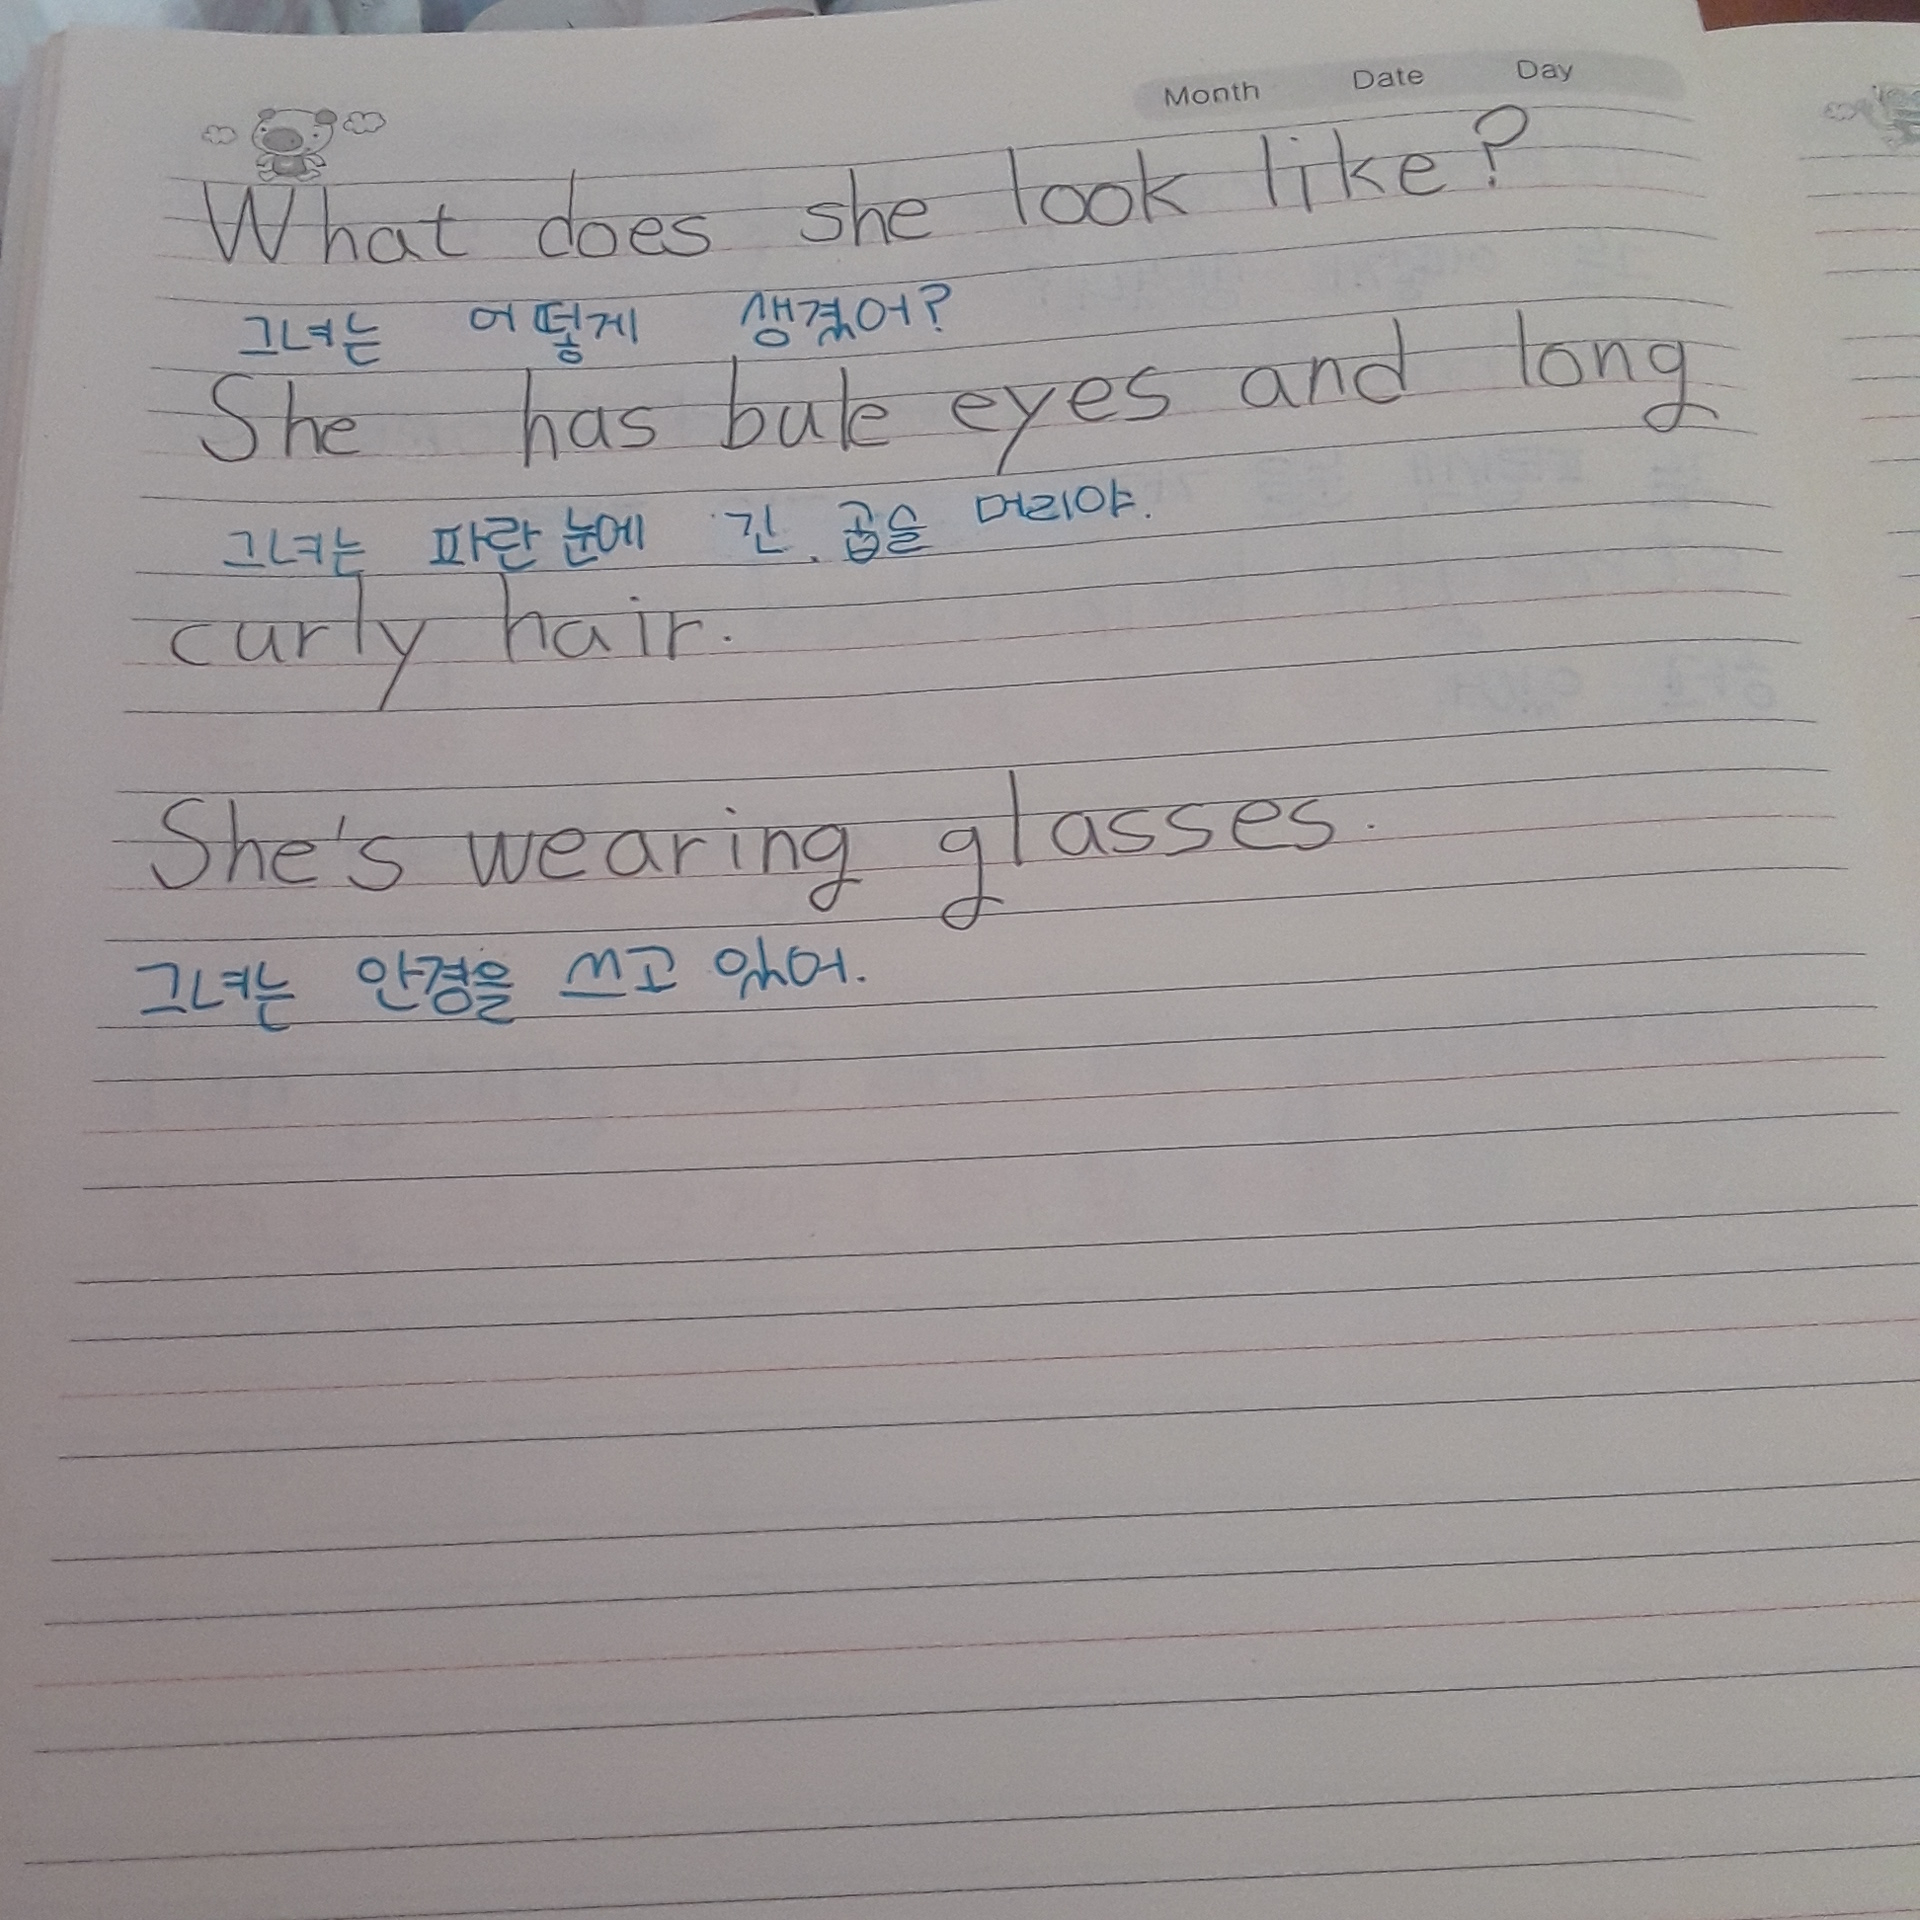 Month Date Day
What does she look like?
그녀는 어떻게 생겼어?
She has bule eyes and long
그녀는 파란 눈에 긴. 곱을 머리야.
curly hair.
She's wearing glasses.
그녀는 안경을 쓰고 있어.